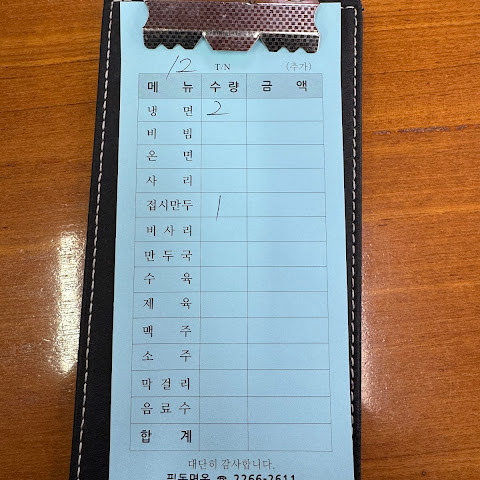 12 T/N (추가)
메 뉴 수 량 금 액
냉 면 2
비 빔
온 면
사 리
접시만두 1
비 사 리
만 두 국
수 육
제 육
맥 주
소 주
막 걸 리
음 료 수
합 계
대단히 감사합니다.
필동면옥 ☎ 2266-2611